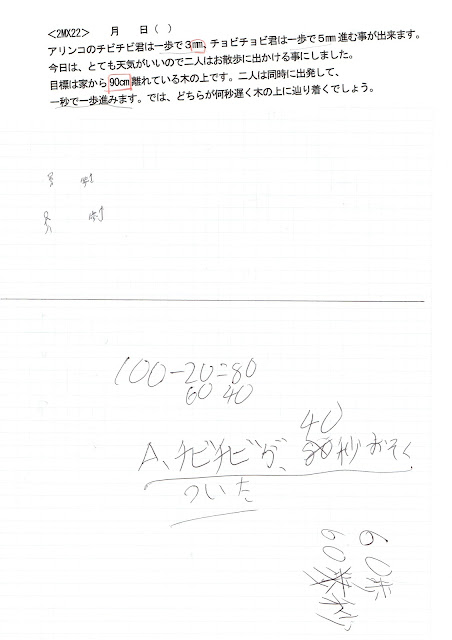 <2MX22>　　月　　日（ ）
アリンコのチビチビ君は一歩で３㎜、チョビチョビ君は一歩で５㎜進む事が出来ます。
今日は、とても天気がいいので二人はお散歩に出かける事にしました。
目標は家から90㎝離れている木の上です。二人は同時に出発して、
一秒で一歩進みます。では、どちらが何秒遅く木の上に辿り着くでしょう。
100－20＝80
60 40
40
A、チビチビが、秒おそく
ついた
60歩
60